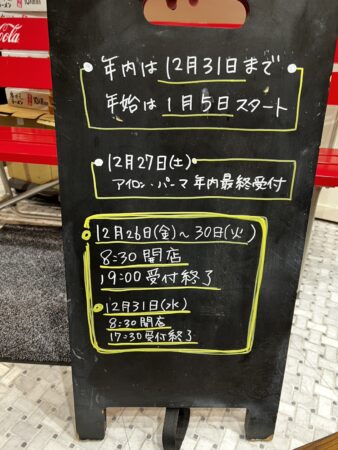 Cola
年内は12月31日まで
年始は1月5日スタート
12月27日(土)
アイロン・パーマ年内最終受付
12月26日(金)~30日(火)
8:30開店
19:00受付終了
12月31日(水)
8:30開店
17:30受付終了